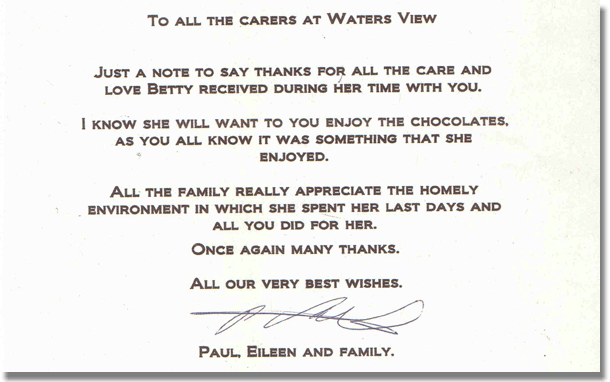 To all the carers at Waters View
Just a note to say thanks for all the care and
love Betty received during her time with you.
I know she will want to you enjoy the chocolates,
as you all know it was something that she
enjoyed.
All the family really appreciate the homely
environment in which she spent her last days and
all you did for her.
Once again many thanks.
All our very best wishes.
Paul, Eileen and family.